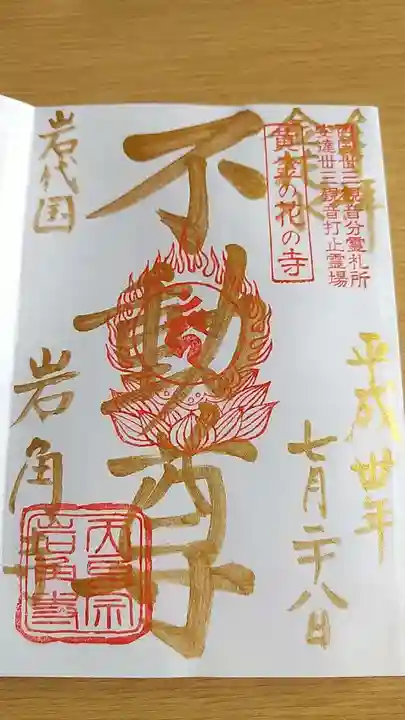 西国卅三観音分霊札所
安達卅三観音打止霊場
の花の寺
平成卅年
七月二十八日
不動尊
岩代国
岩角
天台宗
岩角寺